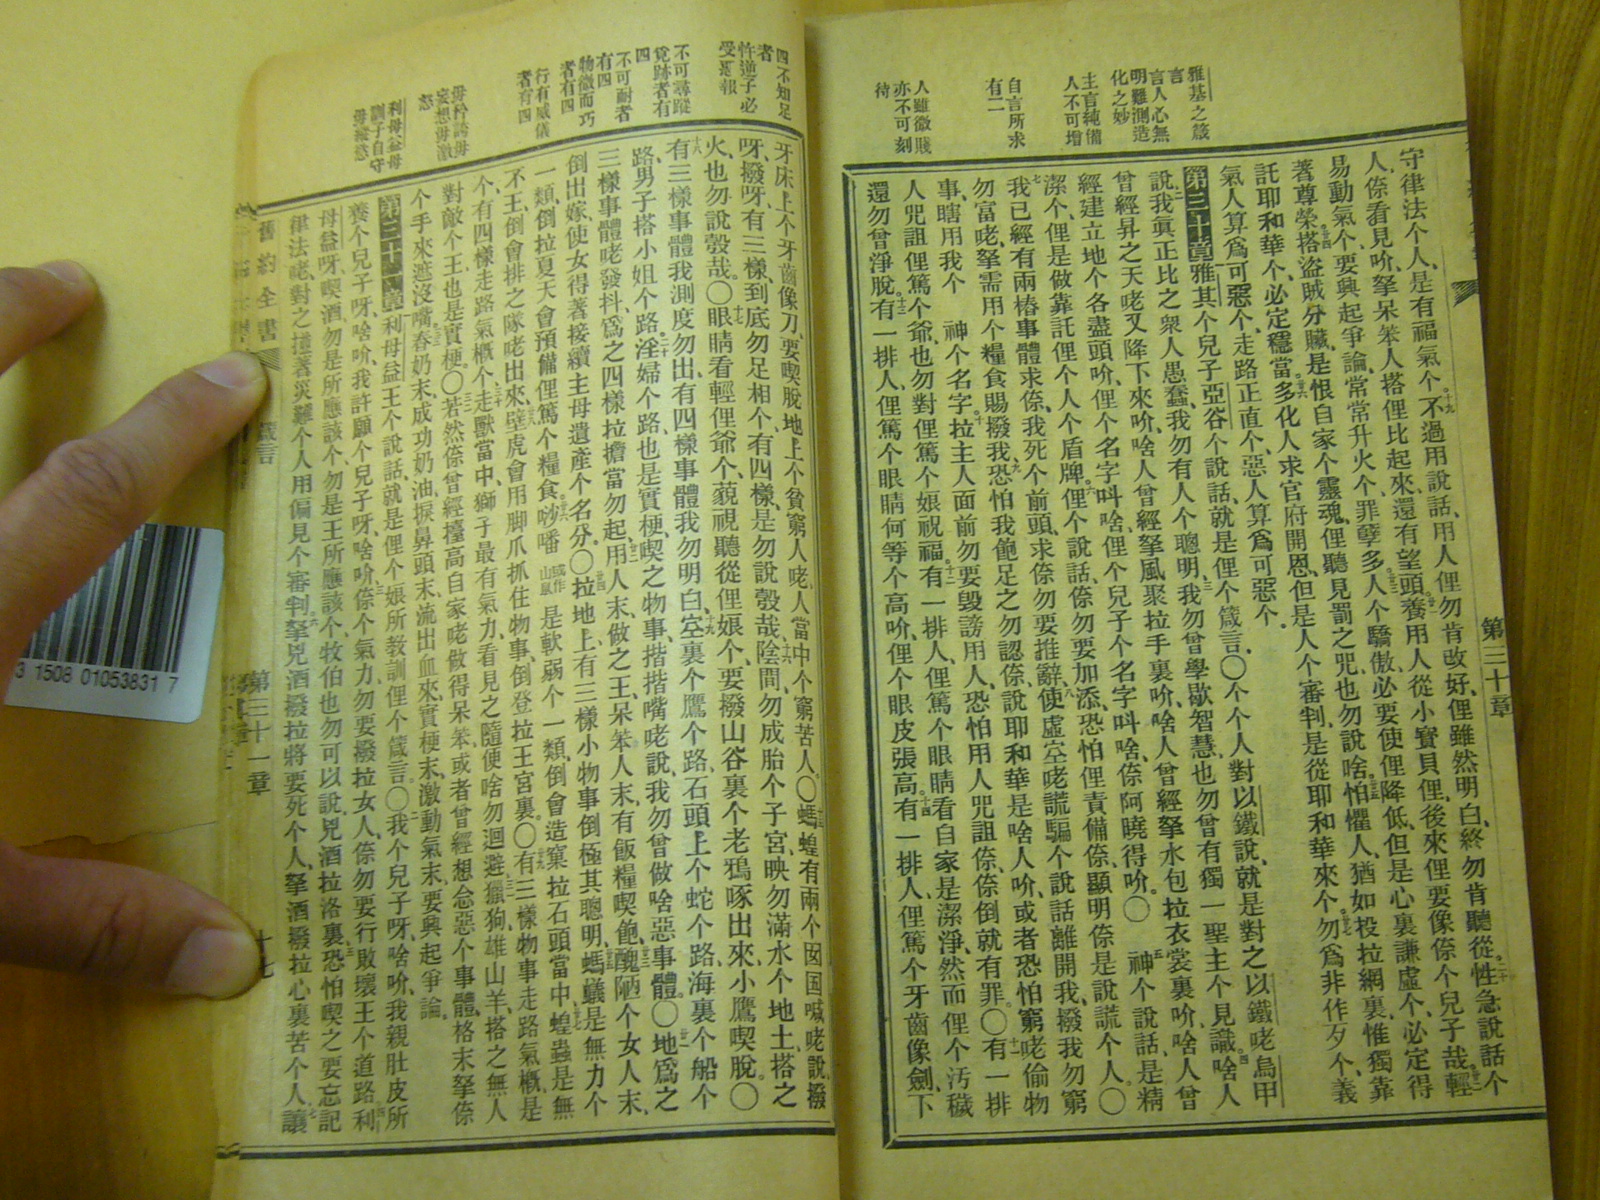 第三十章
雅基之箴言
言人心無
明難測造
化之妙
主言純備
人不可增
自言所求
有二
人雖微賤
亦不可刻
待
守律法个人、是有福氣个。十九不過用說話、用人俚勿肯改好、俚雖然明白、終勿肯聽從。二十性急說話个
人、倷看見吤、拏呆笨人搭俚比起來、還有望頭。養用人從小寶貝俚、後來俚要像倷个兒子哉。輕
易動氣个、要興起爭論、常常升火个、罪孽多。人个驕傲、必要使俚降低、但是心裏謙虛个、必定得
著尊榮。搭盜賊分贓、是恨自家个靈魂、俚聽見罰之咒、也勿說啥。怕懼人、猶如投拉網裏、惟獨靠
託耶和華个、必定穩當。多化人求官府開恩、但是人个審判、是從耶和華來个。勿爲非作歹个、義
氣人算爲可惡个、走路正直个、惡人算爲可惡个。
第三十章雅基个兒子亞谷个說話、就是俚个箴言。〇个个人對以鐵說、就是對之以鐵咾烏甲
說、二我眞正比之衆人愚蠢、我勿有人个聰明、三我勿曾學歇智慧、也勿曾有獨一聖主个見識。四啥人
曾經昇之天咾又降下來吤、啥人曾經拏風聚拉手裏吤、啥人曾經拏水包拉衣裳裏吤、啥人曾
經建立地个各盡頭吤、俚个名字呌啥、俚个兒子个名字呌啥、倷阿曉得吤。〇五神个說話、是精
潔个、俚是做靠託俚个人个盾牌。六俚个說話、倷勿要加添、恐怕俚責備倷、顯明倷是說謊个人。〇
七我已經有兩樁事體求倷、我死个前頭、求倷勿要推辭、八使虛空咾謊騙个說話離開我、撥我勿窮
勿富咾、拏需用个糧食賜撥我、九恐怕我飽足之勿認倷、說耶和華是啥人吤、或者恐怕窮咾偷物
事、瞎用我个　神个名字。十拉主人面前勿要毀謗用人、恐怕用人咒詛倷、倷倒就有罪。〇十一有一排
人、咒詛俚篤个爺、也勿對俚篤个娘祝福。十二有一排人、俚篤个眼睛看自家是潔淨、然而俚个汚穢
還勿曾淨脫。十三有一排人、俚篤个眼睛何等个高吤、俚个眼皮張高。十四有一排人、俚篤个牙齒像劍、下
四不知足
者
忤逆子必
受惡報
不可尋蹤
覓跡者有
四
不可耐者
有四
物微而巧
者有四
行有威儀
者有四
毋矜誇毋
妄想毋激
怒
利母益母
訓子自守
毋縱慾
牙床上个牙齒像刀、要喫脫地上个貧窮人咾、人當中个窮苦人。〇十五螞蝗有兩个囡囯喊咾說、撥
呀、撥呀、有三樣到底勿足相个、有四樣是勿說彀哉、十六陰間、勿成胎个子宮、映勿滿水个地土、搭之
火、也勿說彀哉。〇十七眼睛看輕俚爺个、藐視聽從俚娘个、要撥山谷裏个老鴉啄出來、小鷹喫脫。〇
十八有三樣事體我測度勿出、有四樣事體我勿明白、十九空裏个鷹个路、石頭上个蛇个路、海裏个船个
路、男子搭小姐个路。二十淫婦个路、也是實梗、喫之物事、揩揩嘴咾說、我勿曾做啥惡事體。〇地爲之
三樣事體咾發抖、爲之四樣拉擔當勿起、用人末做之王、呆笨人末有飯糧喫飽、醜陋个女人末、
倒出嫁、使女得著接續主母遺產个名分。〇拉地上有三樣小物事、倒極其聰明、螞蟻是無力个
一類、倒拉夏天會預備俚篤个糧食、吵噃或作山鼠是軟弱个一類、倒會造窠拉石頭當中、蝗蟲是無
不王、倒會排之隊咾出來、壁虎會用脚爪抓住物事、倒登拉王宮裏。〇有三樣物事走路氣概是
个、有四樣走路氣概个、走獸當中、獅子最有氣力、看見之隨便啥勿迴避、獵狗、雄山羊、搭之無人
對敵个王、也是實梗。〇若然倷曾經擡高自家咾做得呆笨、或者曾經想念惡个事體、格末拏倷
个手來遮沒嘴、舂奶末成功奶油、捩鼻頭末、流出血來、實梗末、激動氣末、要興起爭論。
第三十一章利母益王个說話、就是俚个娘所教訓俚个箴言。〇二我个兒子呀、啥吤、我親肚皮所
養个兒子呀、啥吤、我許願个兒子呀、啥吤、三倷个氣力勿要撥拉女人、倷勿要行敗壞王个道路。四利
母益呀、喫酒勿是所應該个、勿是王所應該个、牧伯也勿可以說、兇酒拉洛裏、五恐怕喫之要忘記
律法咾、對之撞著災難个人、用偏見个審判。六拏兇酒撥拉將要死个人、拏酒撥拉心裏苦个人、七讓
舊約全書
箴言
第三十一章
十七
3 1508 01053831 7